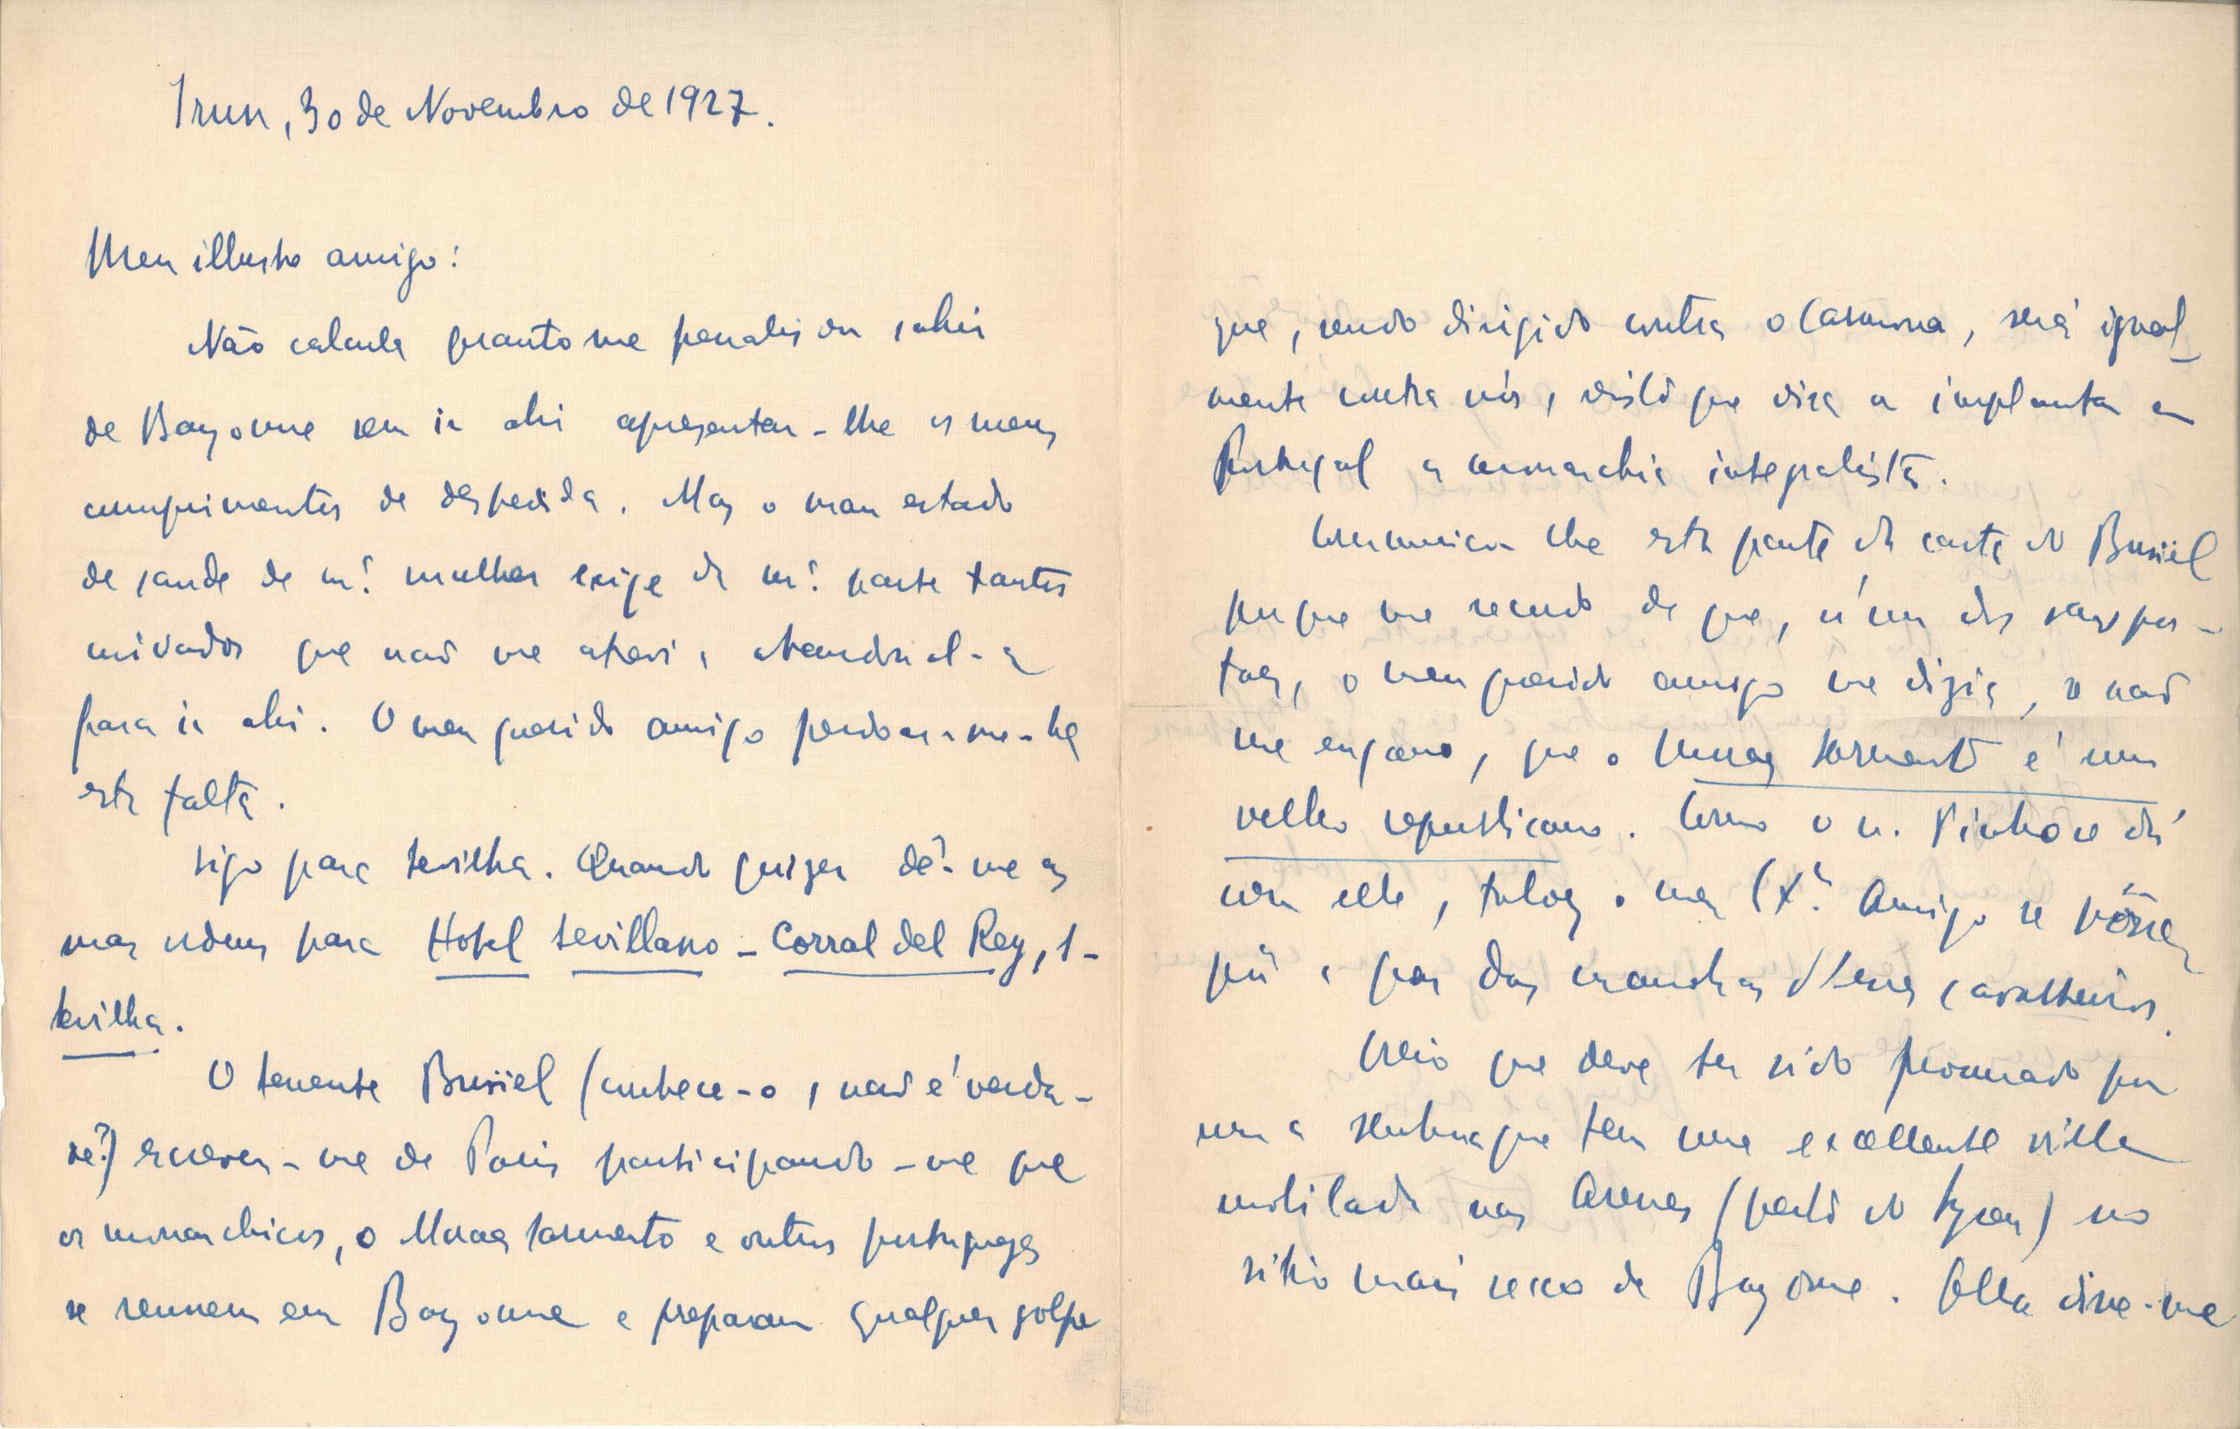 Irun, 30 de Novembro de 1927.
Meu illustre amigo:
Não calcula quanto me penalisou sahir
de Bayonne sem ir ahi apresentar-lhe os meus
cumprimentos de despedida. Mas o mau estado
de saude de m.ª mulher exige da m.ª parte tantos
cuidados que não me atrevi a abandonal-a
para ir ahi. O meu querido amigo perdoar-me-ha
esta falta.
Sigo para Sevilha. Quando quizer dê-me as
suas ordens para Hotel Sevillano - Corral del Rey, 1 -
Sevilha.
O tenente Brusiel (conhece-o, não é verda-
de?) escreveu-me de Paris participando-me que
os monarchicos, o Moraes Sarmento e outros portuguezes
se reunem em Bayonne e preparam qualquer golpe
que, sendo dirigido contra o Carmona, será igual-
mente contra nós, visto que visa a implantar em
Portugal a monarchia integralista.
Communico-lhe esta parte da carta do Brusiel
porque me recordo de que, n'um dos
o meu querido amigo me dizia, se não
me engano, que o Moraes Sarmento é um
velho republicano. Como o n. Pinho se dá
com elle, talvez o meu Ex.º Amigo se possa
pôr a par das manobras d'esses cavalheiros.
Creio que deve ter sido procurado por
uma senhora que tem uma excellente villa
mobilada nas Arenes (perto do Lyceu) no
sitio mais secco de Bayonne. Ella disse-me